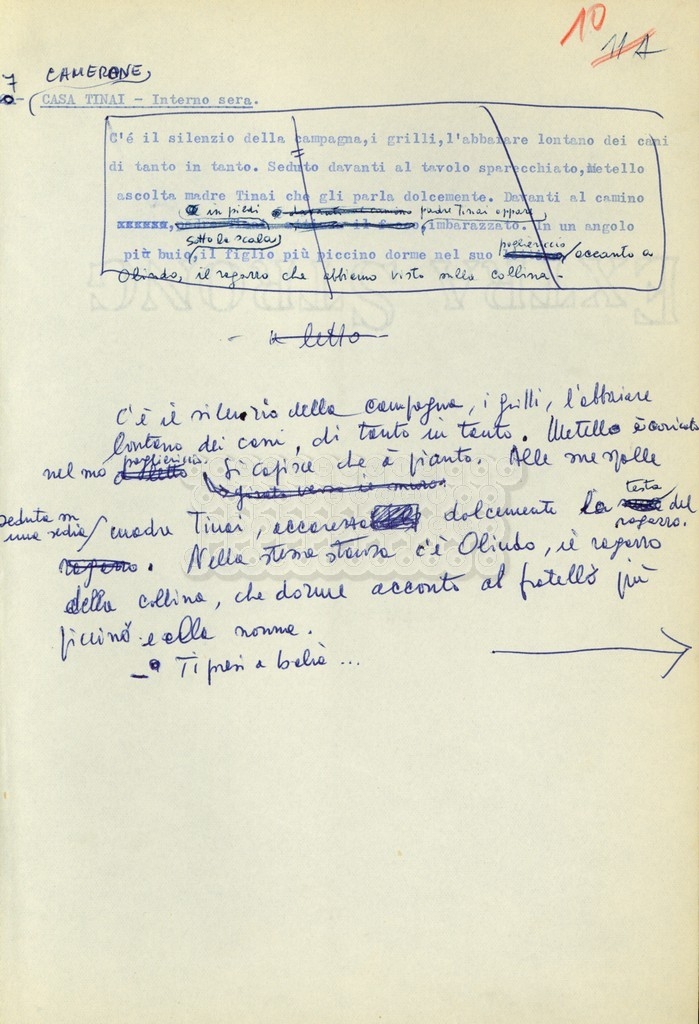 10
11A
7 CAMERONE,
CASA TINAI - Interno sera.
C'é il silenzio della campagna,i grilli,l'abbaiare lontano dei cani
di tanto in tanto. Seduto davanti al tavolo sparecchiato,Metello
ascolta madre Tinai che gli parla dolcemente. Davanti al camino
in piedi davanti al camino padre Tinai appare
xxxxxx, imbarazzato. In un angolo
sotto la scala pagliericcio
più buio,il figlio più piccino dorme nel suo accanto a
Olindo, il ragazzo che abbiamo visto sulla collina -
letto
C'è il silenzio della campagna, i grilli, l'abbaiare
lontano dei cani, di tanto in tanto. Metello è coricato
nel suo pagliericcio letto. Si capisce che à pianto. Alle sue spalle
girato verso il muro.
seduta su una sedia madre Tinai, accarezza dolcemente la testa del ragazzo.
ragazzo. Nella stessa stanza c'è Olindo, il ragazzo
della collina, che dorme accanto al fratello più
piccino e alla nonna.
- Ti presi a balia ...